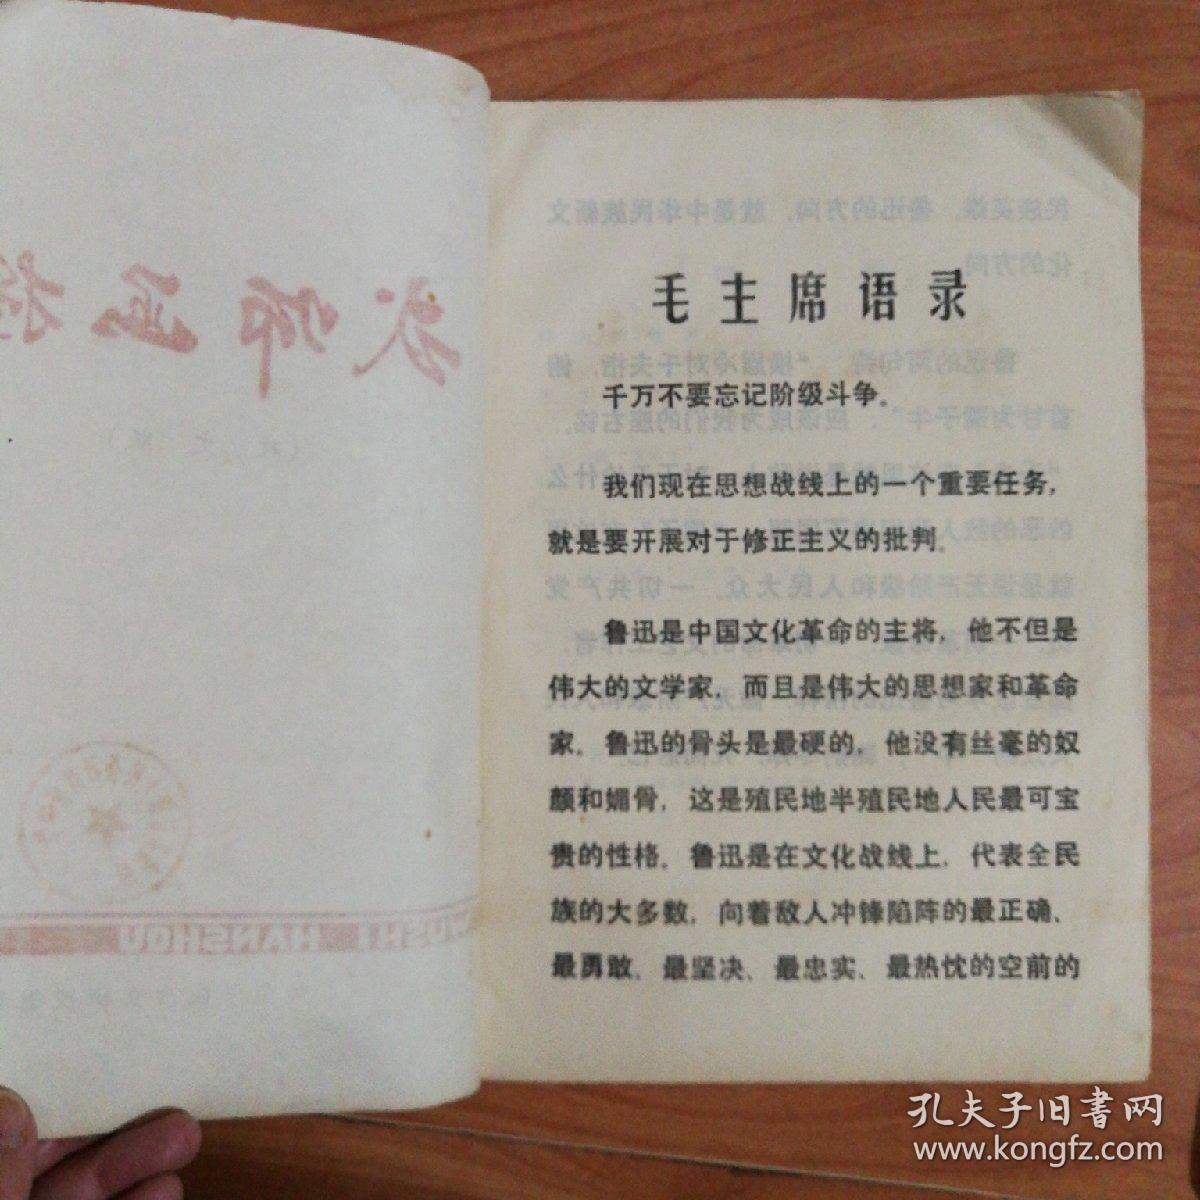 毛主席语录
千万不要忘记阶级斗争。
我们现在思想战线上的一个重要任务，
就是要开展对于修正主义的批判。
鲁迅是中国文化革命的主将，他不但是
伟大的文学家，而且是伟大的思想家和革命
家。鲁迅的骨头是最硬的，他没有丝毫的奴
颜和媚骨，这是殖民地半殖民地人民最可宝
贵的性格。鲁迅是在文化战线上，代表全民
族的大多数，向着敌人冲锋陷阵的最正确、
最勇敢、最坚决、最忠实、最热忱的空前的
孔夫子旧书网
www.kongfz.com